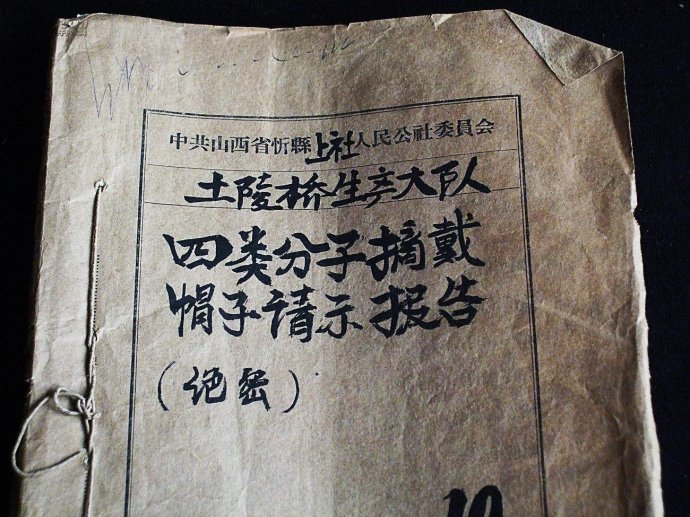 中共山西省忻縣上社人民公社委員会
土陵桥生产大队
四类分子摘戴
帽子请示报告
（绝密）